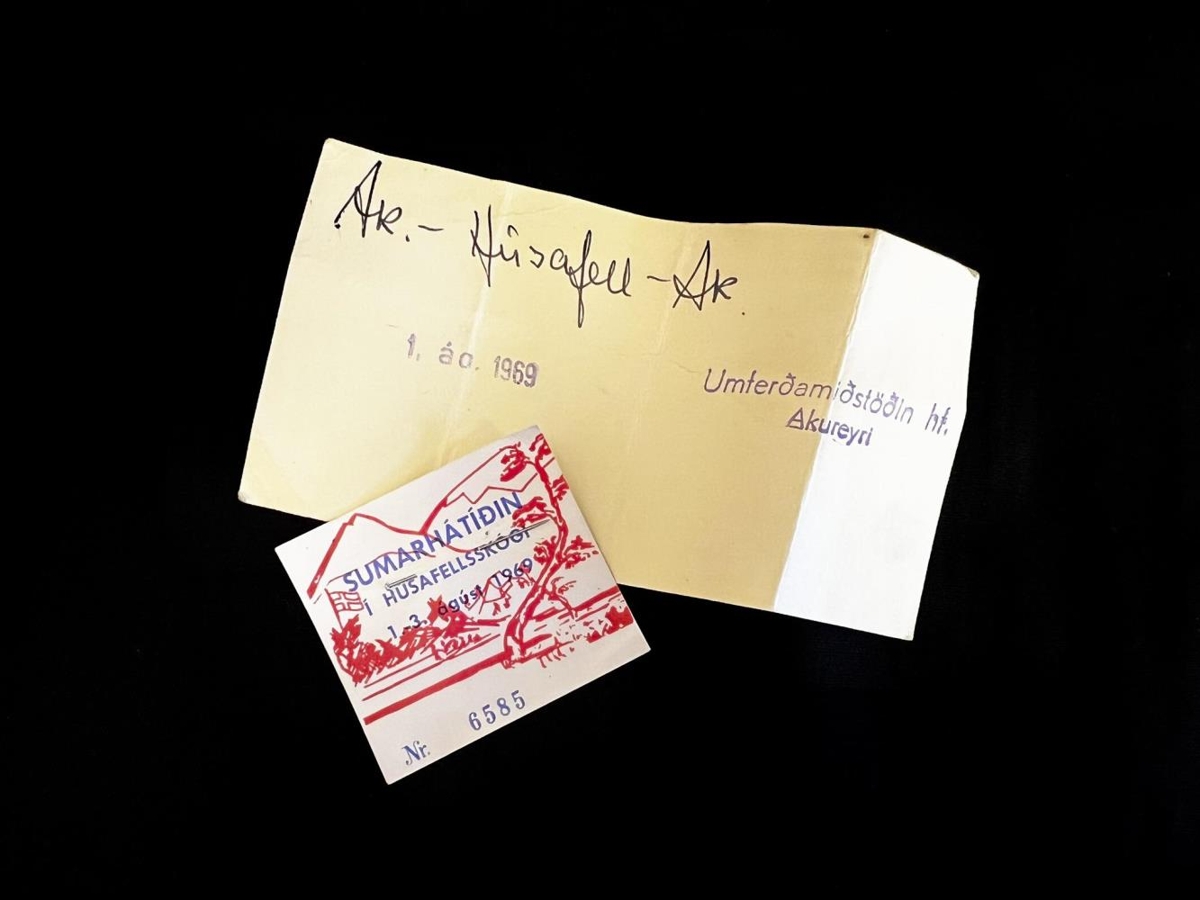 Ak. - Húsafell - Ak.
1. ág. 1969
Umferðamiðstöðin hf.
Akureyri
SUMARHÁTÍÐIN
Í HÚSAFELLSSKÓGI
1.-3. ágúst 1969
Nr. 6585